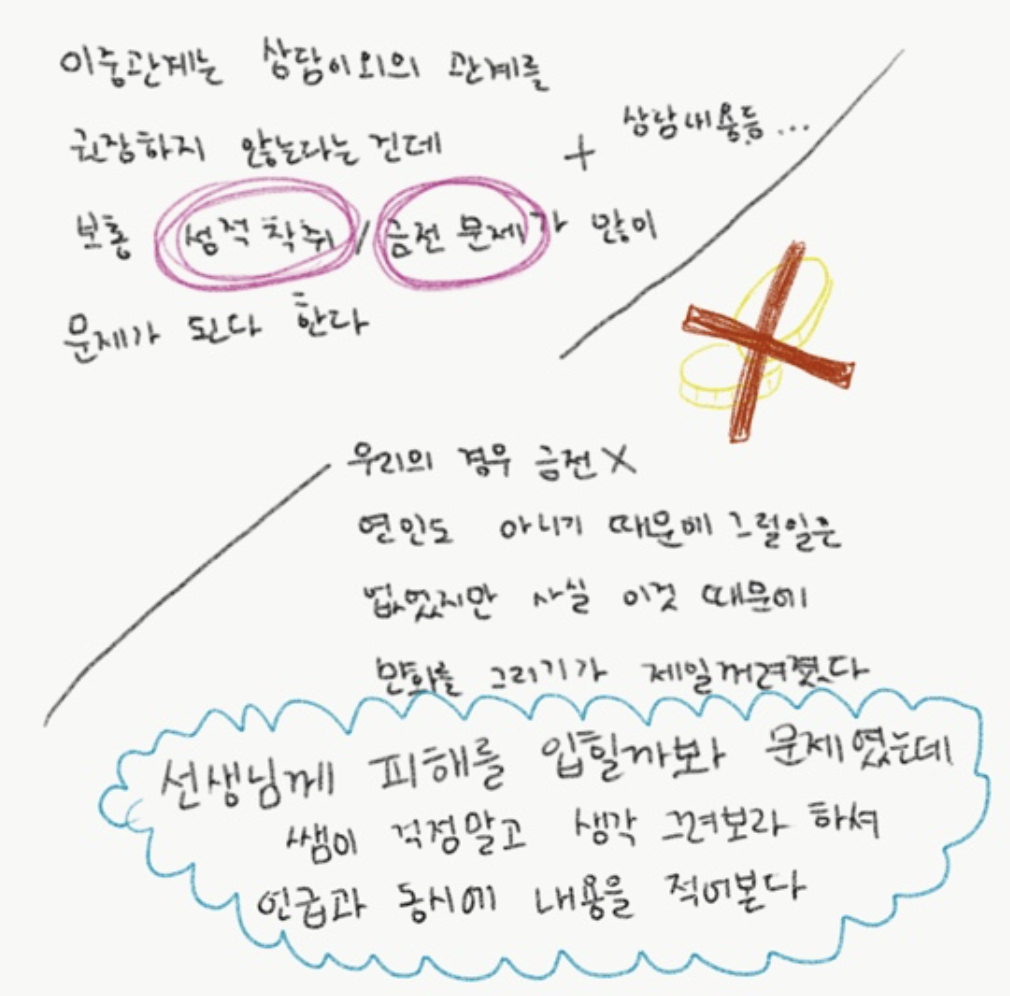 이중관계는 상담이외의 관계를
권장하지 않는다는 건데
+ 상담내용등...
보통 성적 착취 / 금전 문제가 많이
문제가 된다 한다
우리의 경우 금전 X
연인도 아니기 때문에 그럴일은
없었지만 사실 이것 때문에
만화를 그리기가 제일꺼려졌다
선생님께 피해를 입힐까봐 문제였는데
쌤이 걱정말고 생각 그려보라 하셔
언급과 동시에 내용을 적어본다